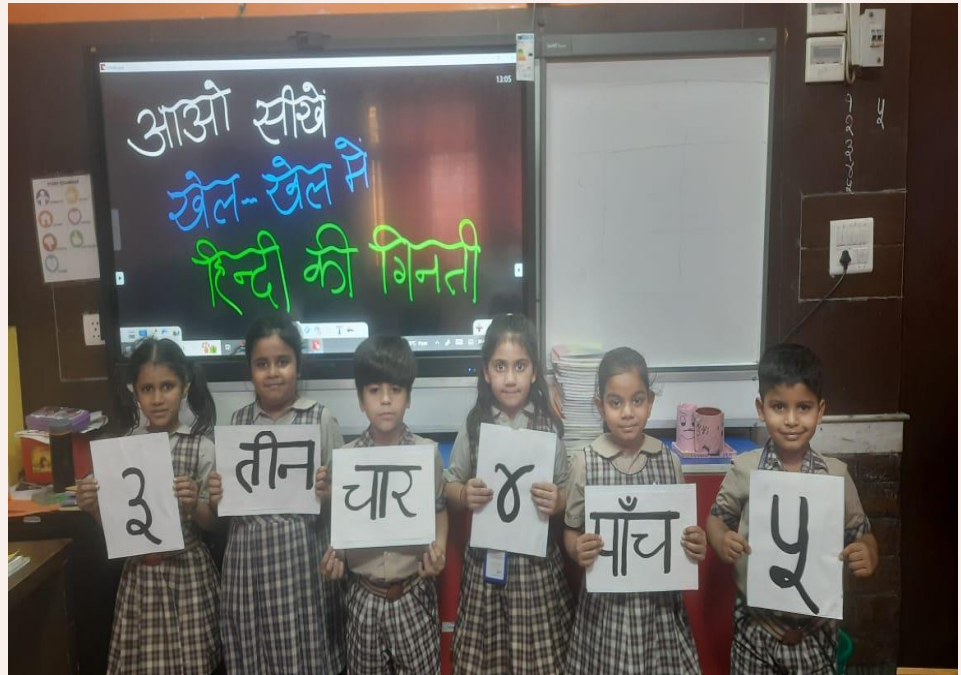 13:05
आओ सीखें
खेल-खेल में
हिन्दी की गिनती
३
तीन
चार
४
पाँच
५